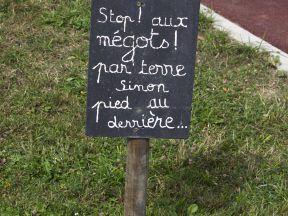 Stop! aux
mégots!
par terre
sinon
pied au
derrière...